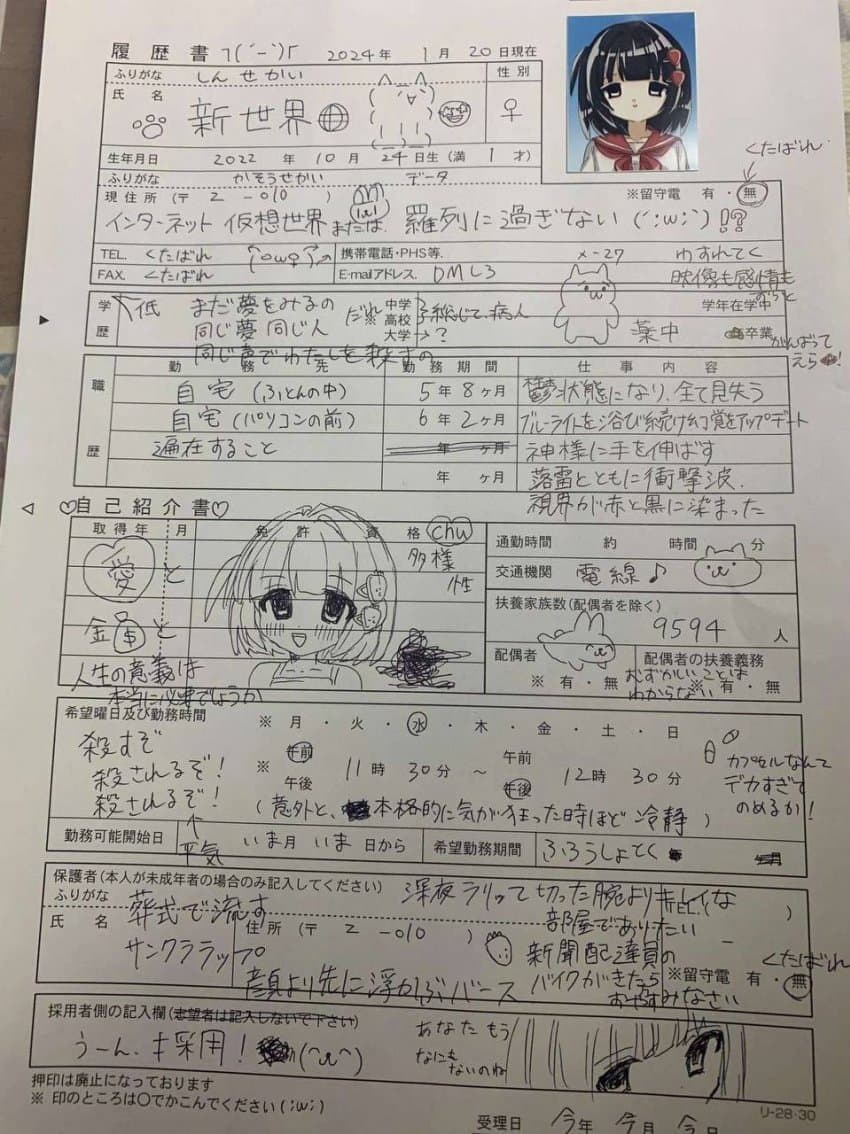 履歴書 2024年 1月 20日現在
ふりがな しん せかい
性別
氏名 新世界
♀
生年月日 2022年 10月 24日生(満 1才)
くたばれ
ふりがな かそうせかい データ
現住所(〒 2-010 )
※留守電 有・無
インターネット 仮想世界 または 羅列に過ぎない (´;ω;`)!?
TEL. くたばれ
携帯電話・PHS等.
FAX. くたばれ
E-mailアドレス. DML3
メー27
わすれてく
映像も感情も
ずらっと
学歴
低
まだ夢をみるの
同じ夢 同じ人
同じ声でわたしを殺すの
だれ
※
中学
高校
大学
総じて、病人
→?
薬中
学年在学中
卒業
がんばって
えら!
職歴
勤務先 勤務期間 仕事内容
自宅(ふとんの中) 5年8ヶ月 鬱状態になり、全て見失う
自宅(パソコンの前) 6年2ヶ月 ブルーライトを浴び続け幻覚をアップデート
遍在すること 年 ヶ月 神様に手を伸ばす
年 ヶ月 落雷とともに衝撃波、
視界が赤と黒に染まった
♡自己紹介書♡
取得年 月 免許 資格
chu
多様性
愛と
金車と
人生の意義は
本当に必要でしょうか
通勤時間 約 時間 分
交通機関 電線♪
扶養家族数(配偶者を除く)
9594人
配偶者 ※有・無
配偶者の扶養義務
※有・無
むずかしいことは
わからない
希望曜日及び勤務時間 ※ 月・火・水・木・金・土・日
殺すぞ
殺されるぞ!
殺されるぞ!
↑
平気
※ 午前 午後 11時 30分 ~ 午前 午後 12時 30分
(意外と、本格的に気が狂った時ほど 冷静)
カプセルなんて
デカすぎて
のめるか!
勤務可能開始日 いま月 いま日から
希望勤務期間 ふろうしょとく
保護者(本人が未成年者の場合のみ記入してください)
ふりがな
氏名
葬式で流す
サンクラップ
住所(〒 2-010 )
TEL.( )
深夜ラリって切った腕よりキレイな
部屋でありたい
新聞配達員の
バイクがきたら
おやすみなさい
顔より先に浮かぶバース
くたばれ
※留守電 有・無
採用者側の記入欄(志望者は記入しないで下さい)
うーん、才採用!
あなた もう
なにも
ないのね
押印は廃止になっております
※ 印のところは○でかこんでください(;ω;)
リ-28・30
受理日 今年 今月 今日